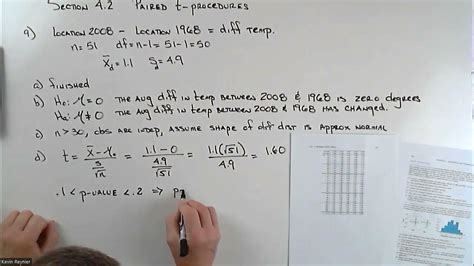 Section 4.2 Paired t-procedures
9) Location 2008 - Location 1968 = diff temp.
n = 51 df = n-1 = 51-1 = 50
x̄d = 1.1 Sd = 4.9
a) finished
b) Ho: μ = 0 The avg diff in temp between 2008 & 1968 is zero degrees
Ha: μ ≠ 0 The avg diff in temp between 2008 & 1968 has changed.
c) n > 30, obs are indep, assume shape of diff dist is approx normal
d) t = x̄ - μ₀ / s/√n = 1.1 - 0 / 4.9/√51 = 1.1(√51) / 4.9 = 1.60
.1 < p-value < .2 ⇒ p
Kevin Reynier